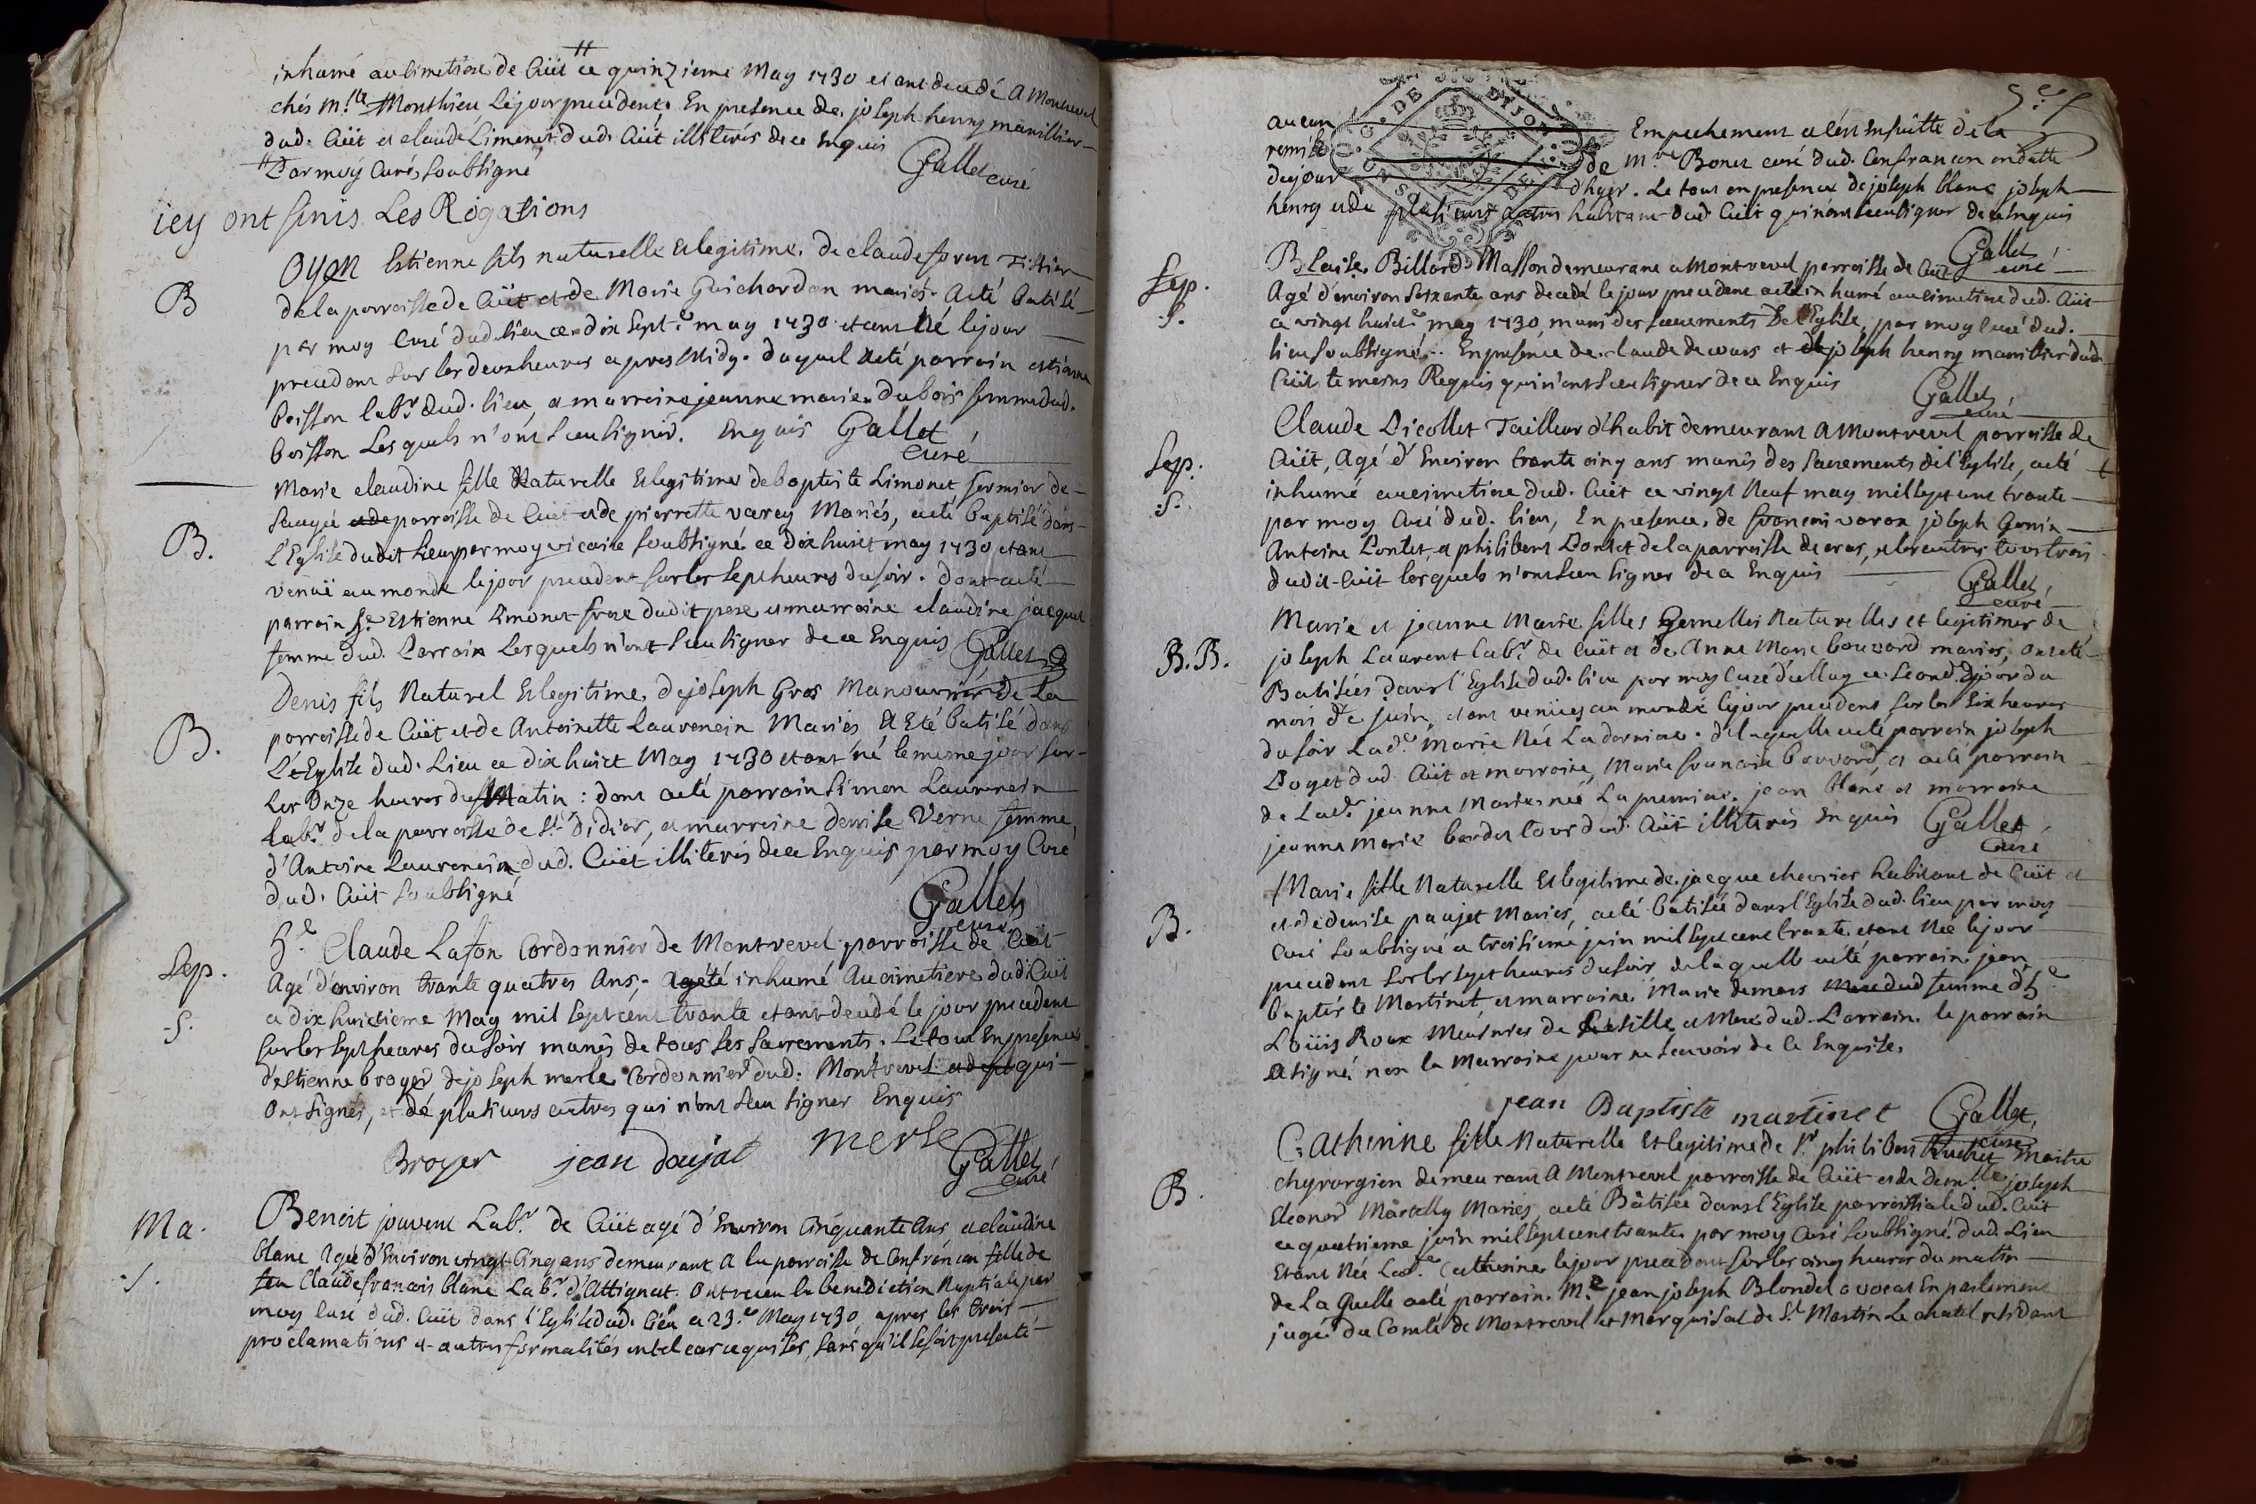 inhumé au cimetiere de Cuët # ce quinzieme May 1730 etant decedé a Montrevel
chés M.lle Monthieu, le jour precedent, En presence de joseph henry manillier
dud. Cuët et claude Limonet dud. Cuët illiterés de ce Enquis
# Par moy Curé, soubsigné Gallet curé
icy ont finis Les Rogations
B
Oyen Estienne fils naturelle et legitime de claude Tissier
de la parroisse de Cüet et de Marie Guichardan mariés a eté batisé
par moy Curé dud. lieu ce dix sept.e may 1730 etant Né le jour
precedent sur les deux heures apres Midy. duquel a eté parrain estienne
boisson lab.r dud. lieu, et marraine jeanne marie Dubois femme dud.
boisson Lesquels n'ont sceu signér. Enquis Gallet
curé
B.
Marie claudine fille Naturelle et legitime de baptiste Limonet, fermier de
parroisse de Cuët et de pierrette varey Mariés, a eté baptisé dans
L'Eglise dudit lieu par moy vicaire soubsigné ce Dix huict may 1730 etant
venuë au monde le jour precedent sur les sept heures du soir. dont a eté
parrain S.r Estienne Limonet frere dudit pere et marraine claudine jacquet
femme dud. Parrain Lesquels n'ont sceu signer de ce Enquis Gallet
B.
Denis fils Naturel et legitime de joseph Gros Manouvrier de La
parroisse de Cuët et de Antoinette Laurencin Mariés A Eté batisé dans
L'Eglise dud. Lieu ce dix huict May 1730 etant né le meme jour sur
Les Onze heures du Matin : dont a eté parrain Simon Laurencin
Lab.r de la parroisse de S.t Didier, et marraine denise Verne femme
d'Antoine Laurencin dud. Cuët illiterés de ce Enquis par moy Curé
dud. Cuët soubsigné
Gallet
curé
Sep.
.S.
S.r Claude Lafon Cordonnier de Montrevel parroisse de Cuët
Agé d'environ trante quatres Ans, a eté inhumé Au cimetiere dud. Cuët
ce dix huictieme May mil sept cent trante etant decedé le jour precedent
sur les sept heures du soir munis de tous les sacrements. Le tout En presence
d'estienne broyer de joseph merle Cordonnier dud. Montrevel qui
ont signés, et dé plusieurs autres qui n'ont sceu signer Enquis
Broyer jean daujat merle Gallet
curé
Ma.
.S.
Benoit jouvent Lab.r de Cüet agé d'Environ cinquante Ans et claudine
blanc Agée d'Environ vingt cinq ans demeurant a la parroisse de Confrancon fille de
feu Claude francois blanc Lab.r d'Attignat. ont receu la benediction Nuptiale par
moy curé dud. Cuët dans l'Eglise dud. lieu ce 23.e May 1730 apres les trois
proclamations et autres formalités en tel cas requises, sans qu'il se soit presenté
aucun Empechement et c'est Ensuitte de la
remise de M.re Bonet curé dud. Confrancon en datte
du jour d'hyer. Le tout en presence de joseph blanc joseph
henry et de plusieurs autres habitant dud. Cuët qui n'ont sceu signer de ce Enquis
Gallet
curé
O.G. DE DIJON
Sep.
.S.
Blaise Billard Masson demeurant a Montrevel parroisse de Cuët
Agé d'environ soixante ans decedé le jour precedent a eté inhumé au cimetiere dud. Cüet
ce vingt huict.e may 1730 muni des sacrements De l'Eglise, par moy curé dud.
lieu soubsigné. En presence de claude et de joseph henry manillier dud.
Cuët temoins Requis qui n'ont sceu signer de ce Enquis
Gallet
curé
Sep.
.S.
Claude Dicollet Tailleur d'habit demeurant a Montrevel parroisse de
Cuët, Agé d'Environ trante cinq ans munis des sacrements de l'Eglise, a eté
inhumé au cimetiere dud. Cuët ce vingt Neuf may mil sept cent trante
par moy Curé dud. lieu, En presence, de francois joseph Genin
Antoine Pontet et philibert Pontet de la parroisse de cras, et les autres tous trois
dudit Cüet lesquels n'ont sceu signer de ce Enquis
Gallet
curé
B.B.
Marie et jeanne Marie filles Gemelles Naturelles et legitimes de
joseph Laurent lab.r de Cuët et de Anne Marie bouvard mariés, ont eté
Batisées dans l'Eglise dud. lieu par moy Curé ce second jour du
mois de juin, etant venües au monde le jour precedent sur les six heures
du soir Lad.e Marie Née La derniere. de laquelle a eté parrain joseph
Poget dud. Cüet et marraine, Marie francoise bouvard, et a eté parrain
de Lad.e jeanne Marie née La premiere. jean blanc et marraine
jeanne Marie tous dud. Cüet illiterés Enquis Gallet
curé
B.
Marie fille Naturelle et legitime de jacque chevrier habitant de Cüet
et de denise paujet Mariés, a eté batisée dans l'Eglise dud. lieu par moy
Curé soubsigné ce troisieme juin mil sept cent trante etant Née le jour
precedent sur les sept heures du soir de laquelle a eté parrain jean
baptiste Martinet et marraine Marie demars femme d'h.e
Loüis Roux Meusnier de et Mere dud. Parrain. le parrain
a signé non la Marraine pour ne sceavoir de ce Enquise.
jean Baptiste martinet Gallet
curé
B.
Catherine fille Naturelle et legitime de S.r philibert Maitre
chyrurgien demeurant a Montrevel parroisse de Cüet et de dem.lle joseph
Eleonor Martelly Mariés, a eté Bâtisée dans l'Eglise parroissiale dud. Cuët
ce quatrieme juin mil sept cent trante par moy Curé soubsigné dud. Lieu
Etant Née Lad.e Catherine le jour precedent sur les cinq heures du matin
de La Quelle a eté parrain M.e jean joseph Blondel avocat En parlement
juge du Comté de Montrevel et Marquisat de S.t Martin Le chatel residant